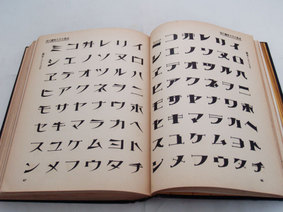 イロハニホヘトチ
リヌルヲワカヨタ
レソツネナラムウ
ヰノオクヤマケフ
コエテアサキユメ
ミシヱヒモセスン
イロハニホヘトチ
リヌルヲワカヨタ
レソツネナラムウ
ヰノオクヤマケフ
コエテアサキユメ
ミシヱヒモセスン